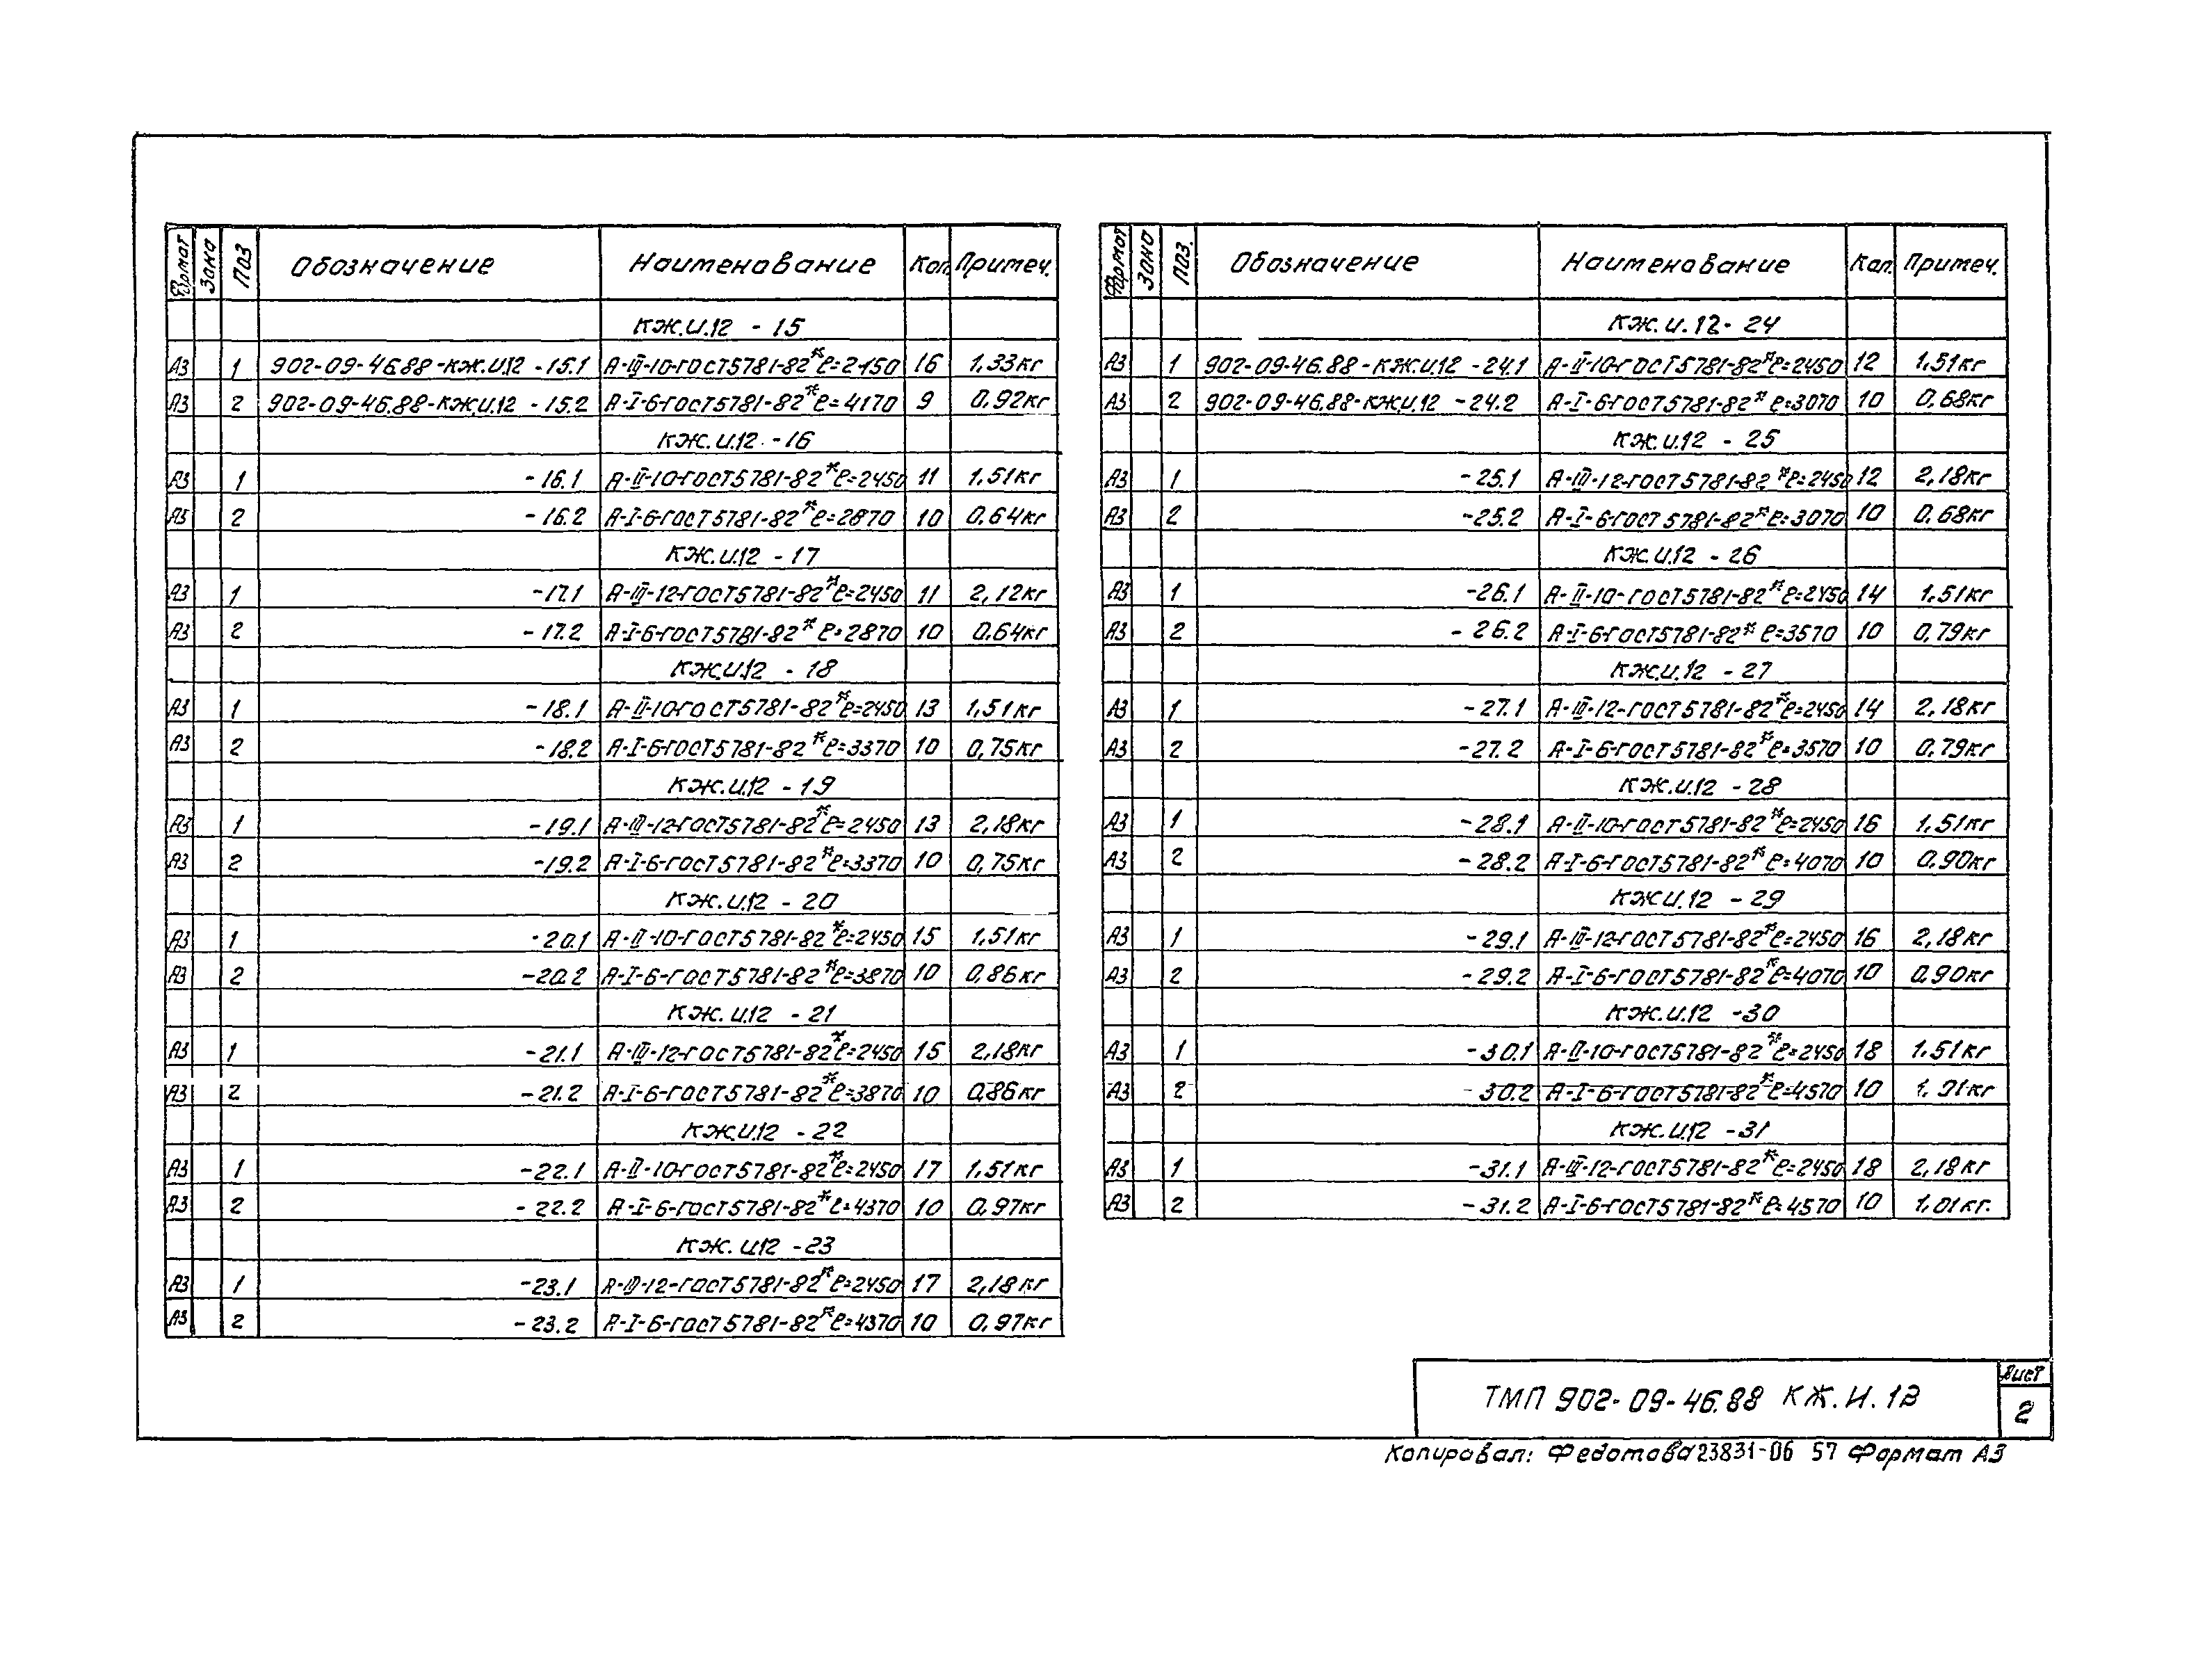 Формат Зона Поз Обозначение Наименование Кол. Примеч.
КЖ.И.12 - 15
А3 1 902-09-46.88-КЖ.И.12 -15.1 А-III-10-ГОСТ5781-82* ℓ=2150 16 1,33кг
А3 2 902-09-46.88-КЖ.И.12 -15.2 А-I-6-ГОСТ5781-82* ℓ=4170 9 0,92кг
КЖ.И.12 -16
А3 1 -16.1 А-II-10-ГОСТ5781-82* ℓ=2450 11 1,51кг
А3 2 -16.2 А-I-6-ГОСТ5781-82* ℓ=2870 10 0,64кг
КЖ.И.12 -17
А3 1 -17.1 А-III-12-ГОСТ5781-82* ℓ=2450 11 2,12кг
А3 2 -17.2 А-I-6-ГОСТ5781-82* ℓ=2870 10 0,64кг
КЖ.И.12 - 18
А3 1 -18.1 А-II-10-ГОСТ5781-82* ℓ=2450 13 1,51кг
А3 2 -18.2 А-I-6-ГОСТ5781-82* ℓ=3370 10 0,75кг
КЖ.И.12 -19
А3 1 -19.1 А-III-12-ГОСТ5781-82* ℓ=2450 13 2,18кг
А3 2 -19.2 А-I-6-ГОСТ5781-82* ℓ=3370 10 0,75кг
КЖ.И.12 - 20
А3 1 -20.1 А-II-10-ГОСТ5781-82* ℓ=2450 15 1,51кг
А3 2 -20.2 А-I-6-ГОСТ5781-82* ℓ=3870 10 0,86кг
КЖ.И.12 - 21
А3 1 -21.1 А-III-12-ГОСТ5781-82* ℓ=2450 15 2,18кг
А3 2 -21.2 А-I-6-ГОСТ5781-82* ℓ=3870 10 0,86кг
КЖ.И.12 -22
А3 1 -22.1 А-II-10-ГОСТ5781-82* ℓ=2450 17 1,51кг
А3 2 -22.2 А-I-6-ГОСТ5781-82* ℓ=4370 10 0,97кг
КЖ.И.12 -23
А3 1 -23.1 А-III-12-ГОСТ5781-82* ℓ=2450 17 2,18кг
А3 2 -23.2 А-I-6-ГОСТ5781-82* ℓ=4370 10 0,97кг
Формат Зона Поз. Обозначение Наименование Кол. Примеч.
КЖ.И.12-24
А3 1 902-09-46.88-КЖ.И.12 -24.1 А-II-10-ГОСТ5781-82* ℓ=2450 12 1,51кг
А3 2 902-09-46.88-КЖ.И.12 -24.2 А-I-6-ГОСТ5781-82* ℓ=3070 10 0,68кг
КЖ.И.12 - 25
А3 1 -25.1 А-III-12-ГОСТ5781-82 *ℓ=2450 12 2,18кг
А3 2 -25.2 А-I-6-ГОСТ5781-82* ℓ=3070 10 0,68кг
КЖ.И.12 - 26
А3 1 -26.1 А-II-10-ГОСТ5781-82* ℓ=2450 14 1,51кг
А3 2 -26.2 А-I-6-ГОСТ5781-82* ℓ=3570 10 0,79кг
КЖ.И.12 -27
А3 1 -27.1 А-III-12-ГОСТ5781-82* ℓ=2450 14 2,18кг
А3 2 -27.2 А-I-6-ГОСТ5781-82* ℓ=3570 10 0,79кг
КЖ.И.12 -28
А3 1 -28.1 А-II-10-ГОСТ5781-82* ℓ=2450 16 1,51кг
А3 2 -28.2 А-I-6-ГОСТ5781-82* ℓ=4070 10 0,90кг
КЖ.И.12 -29
А3 1 -29.1 А-III-12-ГОСТ5781-82* ℓ=2450 16 2,18кг
А3 2 -29.2 А-I-6-ГОСТ5781-82* ℓ=4070 10 0,90кг
КЖ.И.12 -30
А3 1 -30.1 А-II-10-ГОСТ5781-82* ℓ=2450 18 1,51кг
А3 2 -30.2 А-I-6-ГОСТ5781-82* ℓ=4570 10 1,01кг
КЖ.И.12 -31
А3 1 -31.1 А-III-12-ГОСТ5781-82* ℓ=2450 18 2,18кг
А3 2 -31.2 А-I-6-ГОСТ5781-82* ℓ=4570 10 1,01кг.
ТМП 902-09-46.88 КЖ.И.12
Лист
2
Копировал: Федотова 23831-06 57 Формат А3